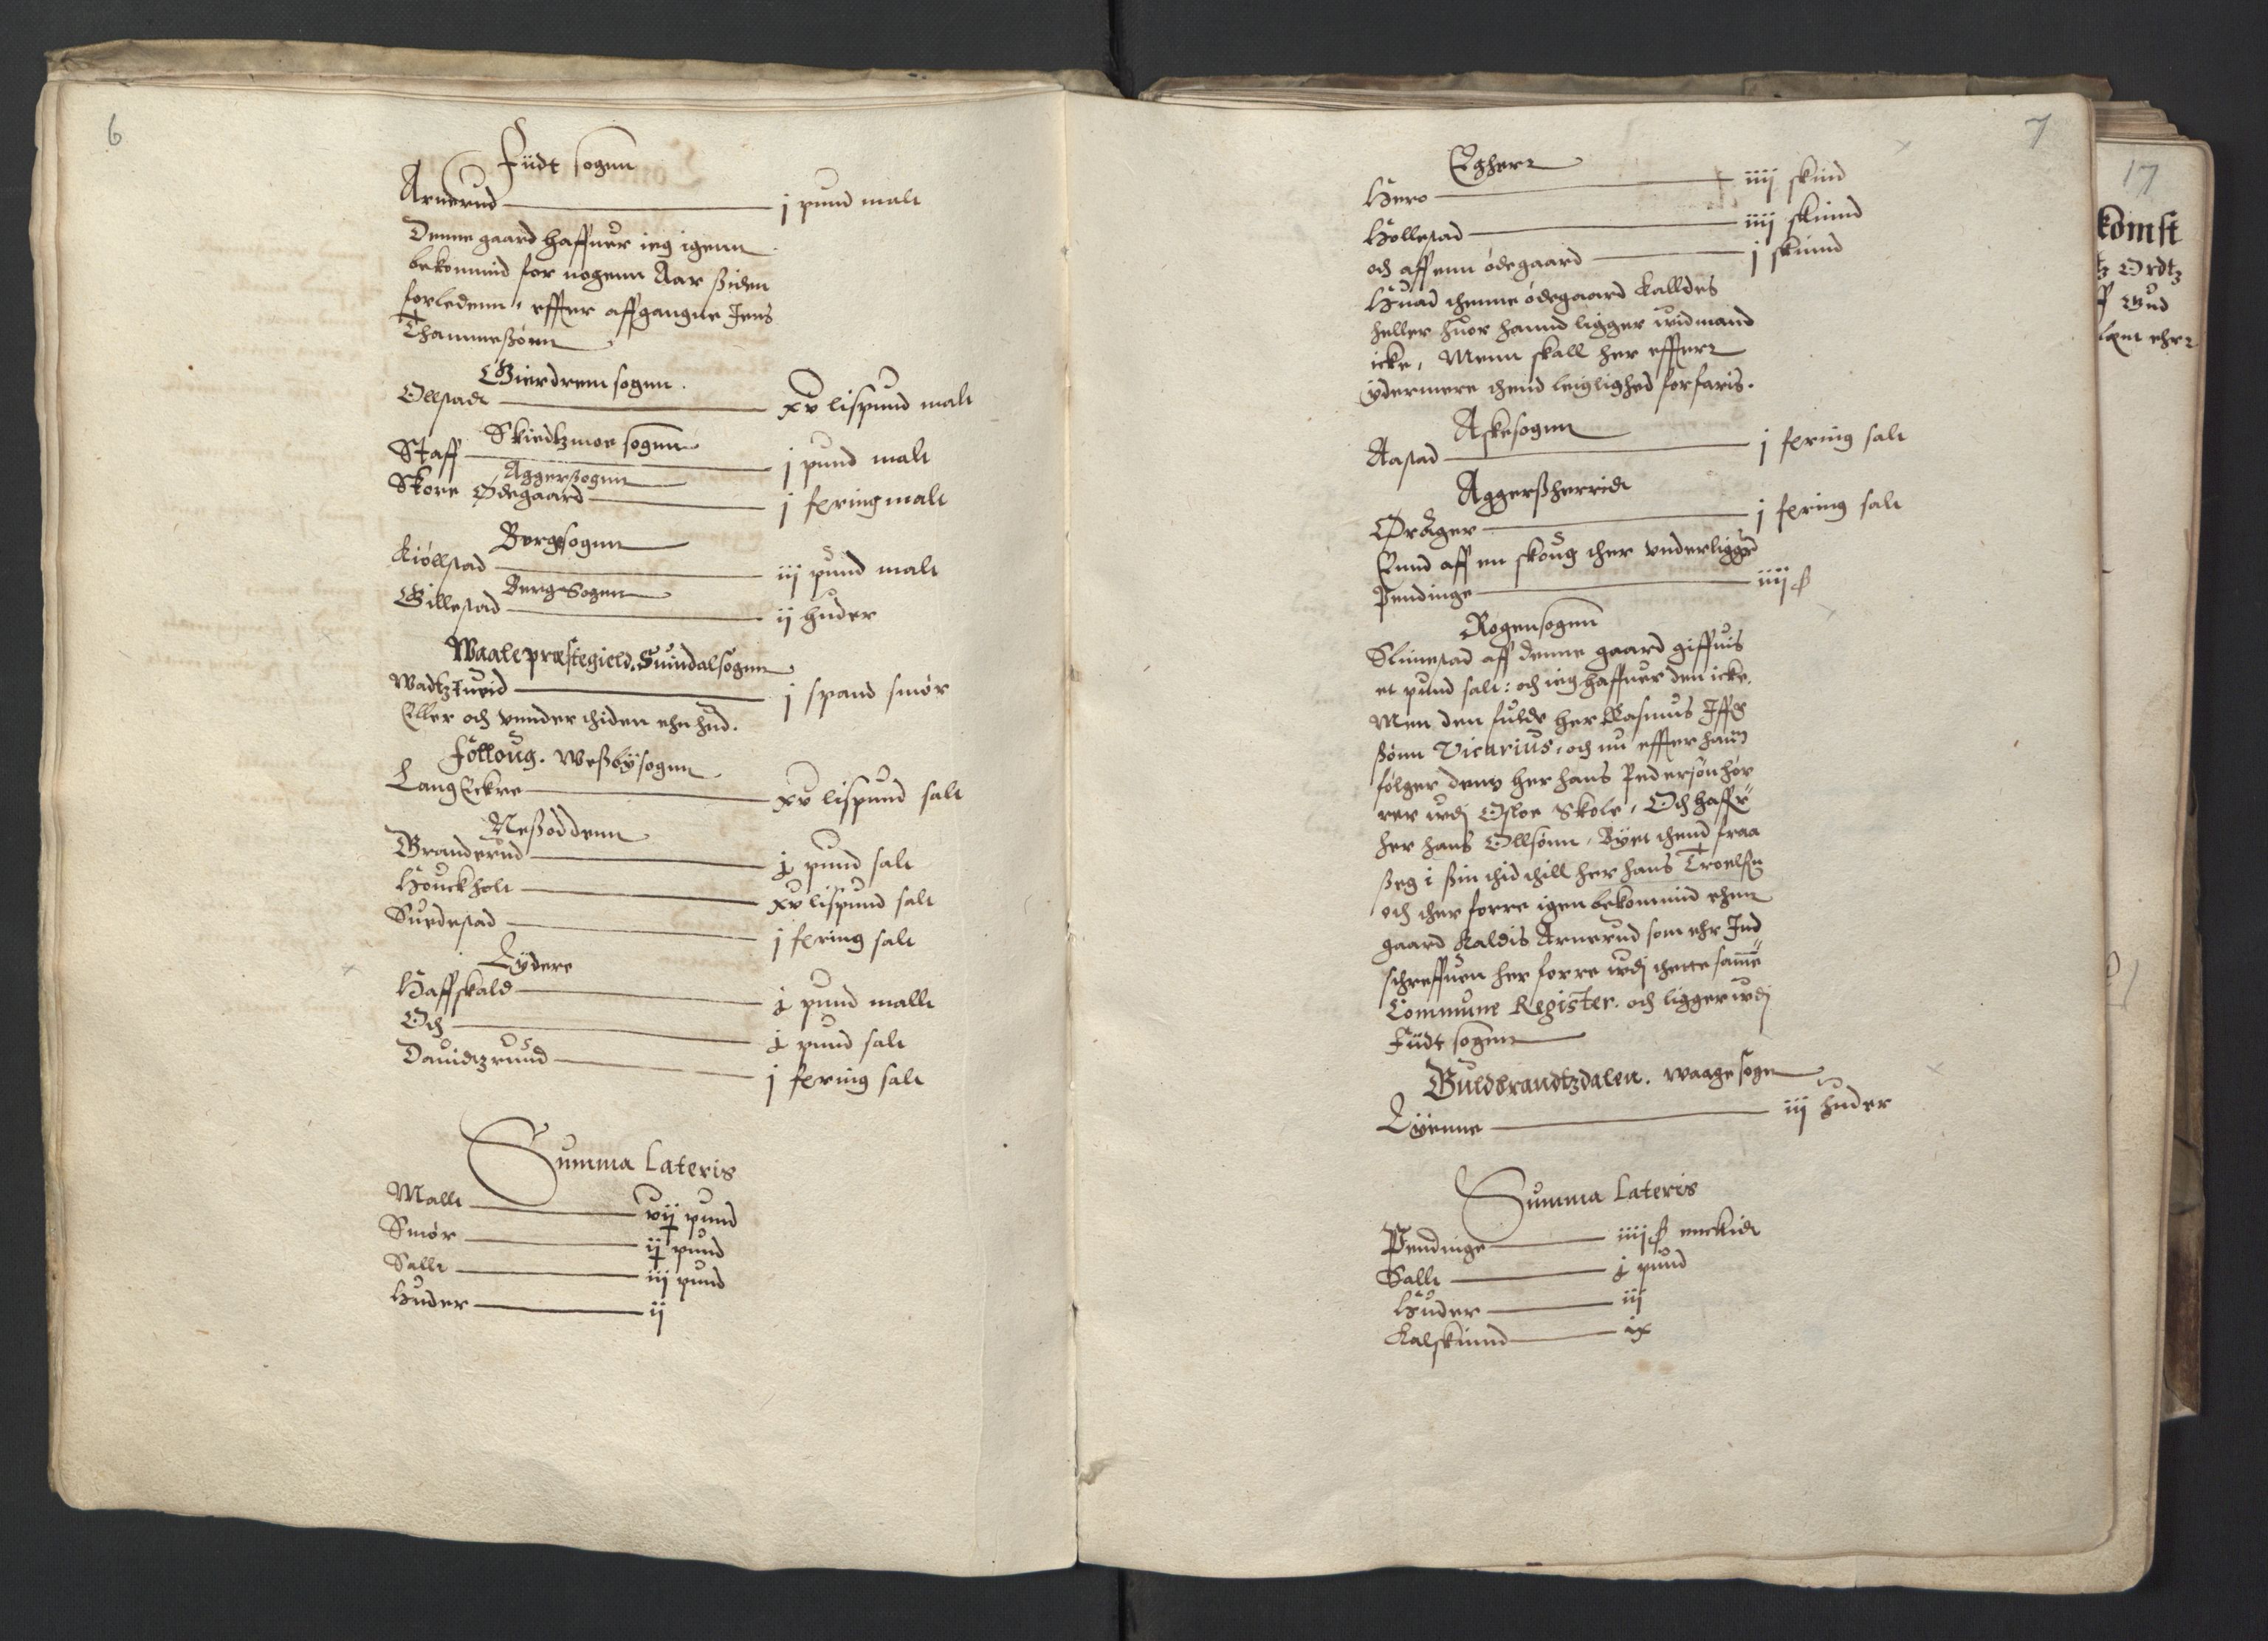 6
Fiidt sognn
Arnerud j pund malt
Denne gaard haffuer ieg igenn
bekommid for nogenn Aar siden
forledenn, effter affgangne Jens
Thammessønn
Gierdrem sogenn.
Ollstadt xv lispund malt
Skiedtzmoe sognn
Staff j pund malt
Aggersogenn
Skore Ødegaard j fering malt
Bergsogenn
Kiøllstad iij pund malt
Berge Sogenn
Gillestad ij huder
Waale præstegield. Suindal sogenn
Wadtztueid j spand smør
Eller och vnder thiden ehn hud.
Folloug. Wessbÿ sogenn
Lang Eckre xv lispund salt
Nessoddenn
Branderud j pund salt
Houckholt xv lispund salt
Suedestad j fering salt
Lÿdere
Haffskald j pund mallt
Och j pund salt
Dauidtzrund j fering salt
Summa Lateris
Mallt vij pund
Smør ij pund
Sallt iij pund
Huder ij
7
Egherr
Hero iiij skind
Hollestad iiij skinnd
och aff enn ødegaard j skinnd
Huad thenne ødegaard kalldes
heller huor hannd ligger widmand
icke, Menn skall her effterr
ÿdermere thend leiglighed forfaris.
Askesogenn
Aastad j fering salt
Aggerssherridt
Ørager j fering salt
Ennd aff en skoug ther vnderligger
Pendinge iiij ß
Rogensognn
Slimestad aff denne gaard giffuis
et pund salt: och ieg haffuer den icke.
Men den fulde her Rasmus Iffer
ssønn Vicarius, och nu effter hann
følger denn her hans Pedersøn hør
rer udj Osloe Skole, Och haffr
her hans Ollsønn, Bÿtt thend fraa
seg i sin thid thill her hans Troelssen
och ther forre igen bekommid ehnn
gaard Kaldis Arnerud som ehr Ind
schreffuen her forre udj thette samme
Commune Register. och ligger udj
Fiidt sognn
Guldbrandtzdalen. Waage sogn
Lÿenne iij huder
Summa Lateris
Pendinge iiij ß enckidt
Sallt j pund
Huder iij
Kalskinnd ix
17
komst
tz Ordtz
ff Gud